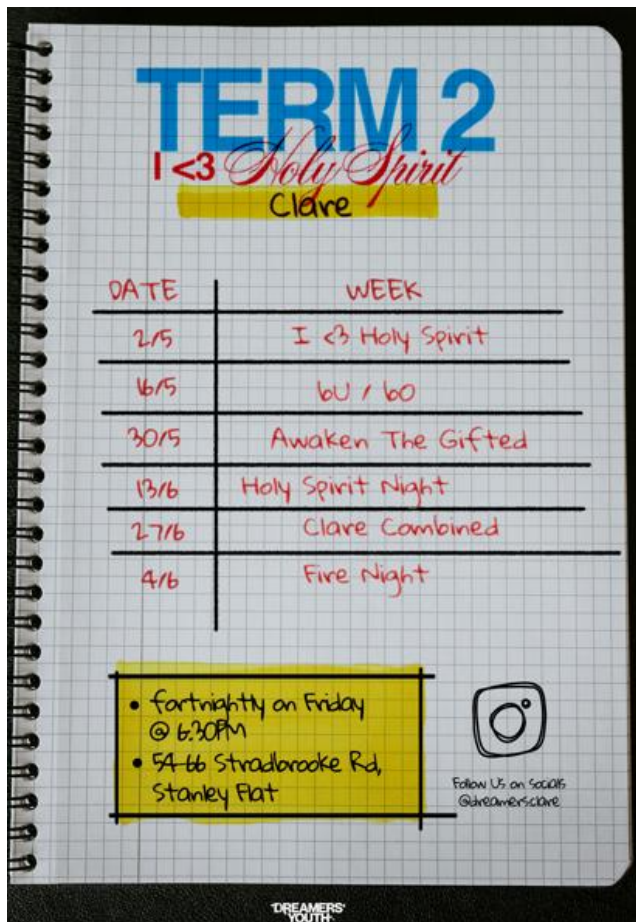 TERM 2
I <3 Holy Spirit
Clare
DATE WEEK
2/5 I <3 Holy Spirit
16/5 bU / bO
30/5 Awaken The Gifted
13/6 Holy Spirit Night
27/6 Clare Combined
4/6 Fire Night
• fortnightly on Friday
@ 6:30PM
• 54-66 Stradbrooke Rd,
Stanley Flat
Follow Us on Socials
@dreamersclare
"DREAMERS'
YOUTH